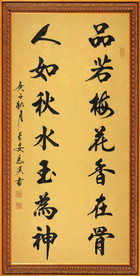 品若梅花香在骨
人如秋水玉為神
庚子秋月